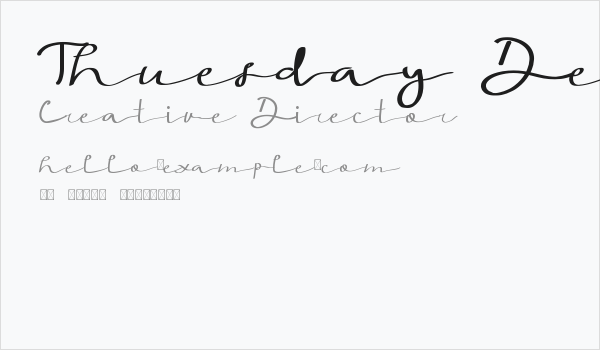 Thuesday De
Creative Director
hello▯example▯com